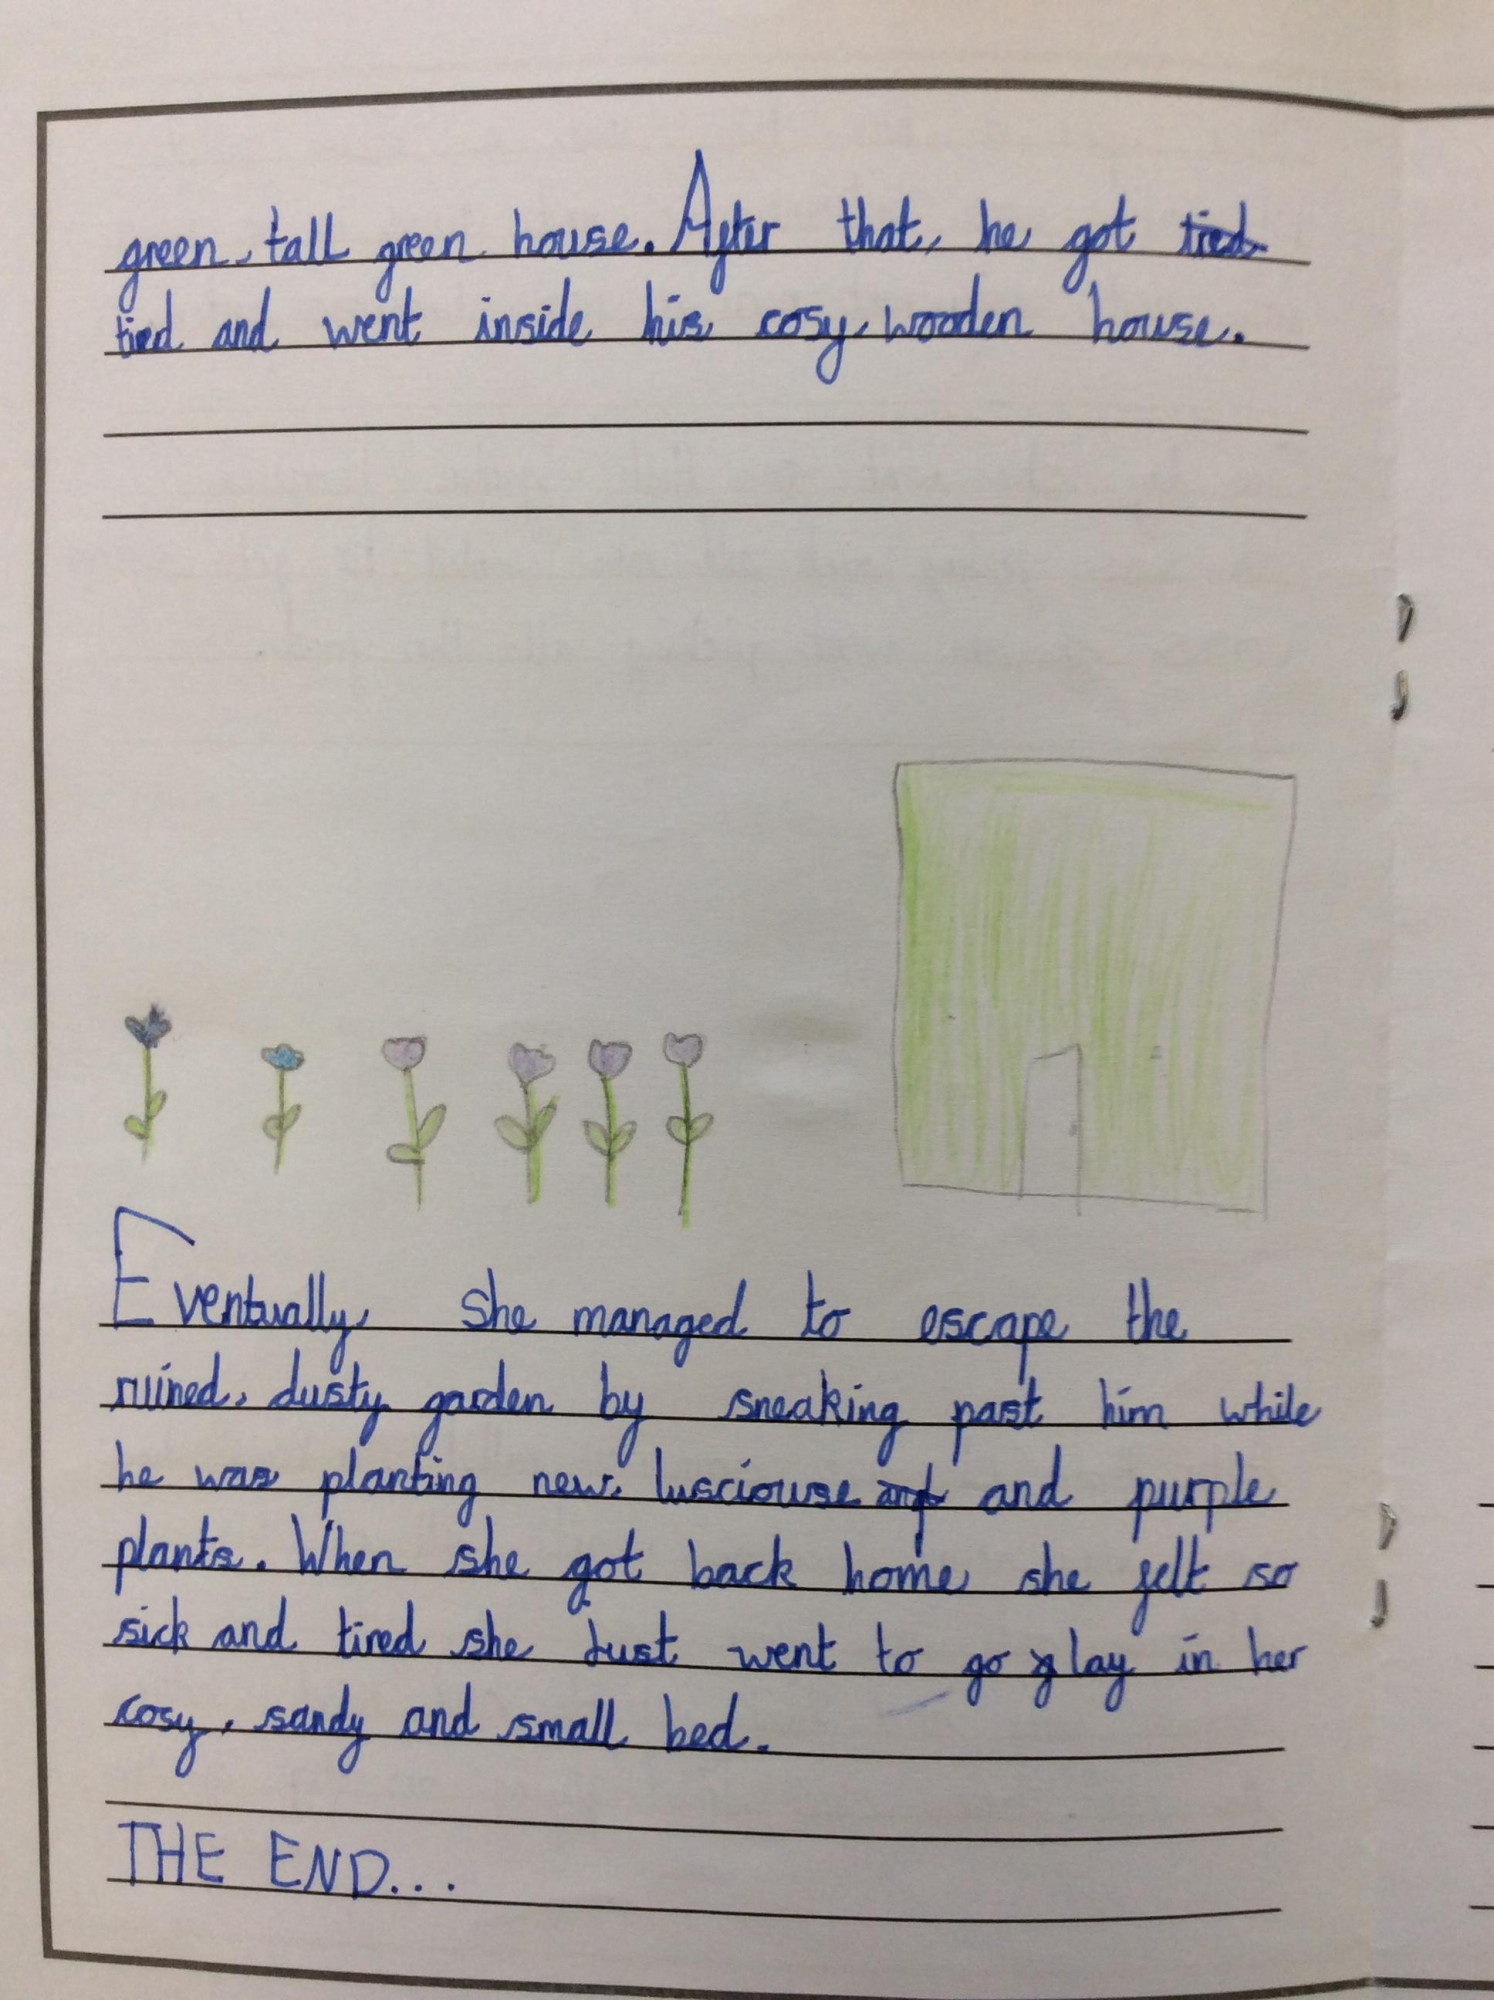 green, tall green house. After that, he got tied
tied and went inside his cosy, wooden house.
Eventually, she managed to escape the
ruined, dusty garden by sneaking past him while
he was planting new, lusciouse and and purple
plants. When she got back home she felt so
sick and tired she Just went to go lay in her
cosy, sandy and small bed.
THE END...